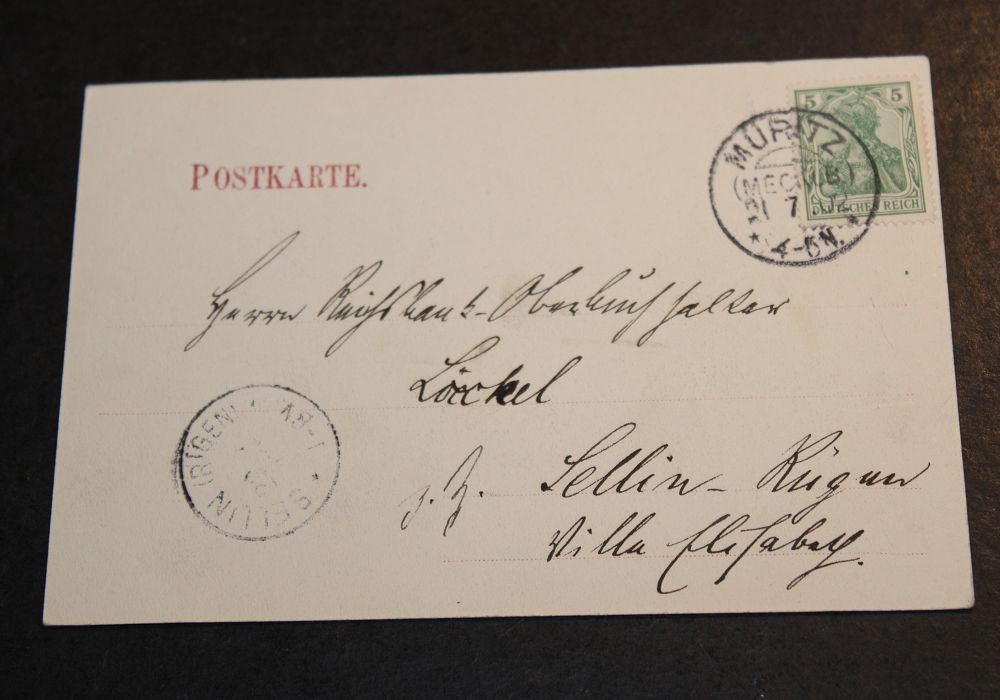 POSTKARTE.
5 5
DEUTSCHES REICH
MÜRITZ
(MECKLB)
7 02
4-5N.
Herrn Reichsbank-Oberbuchhalter
Löckel
z. Z. Sellin-Rügen
Villa Elisabeth.
SELLIN (RÜGEN)